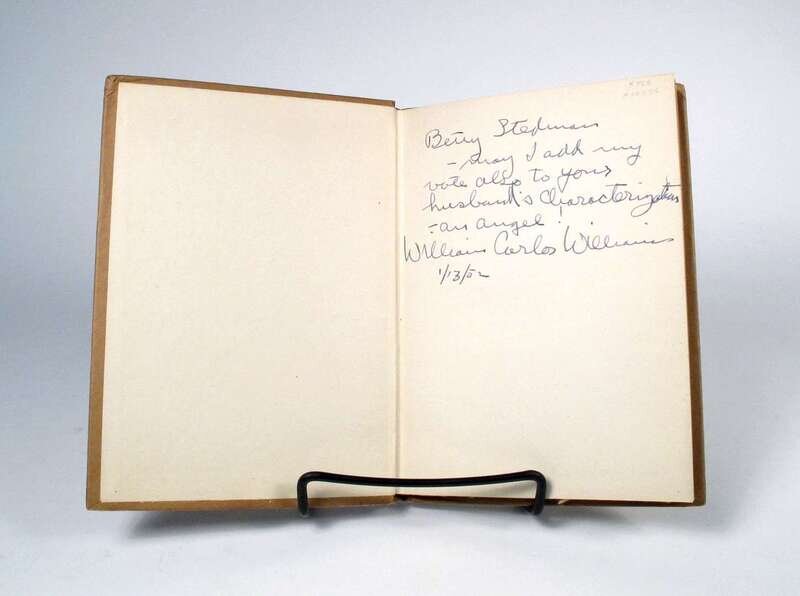 Betty Stedman
- may I add my
vote also to your
husband's characterization
- an angel!
William Carlos Williams
1/13/52